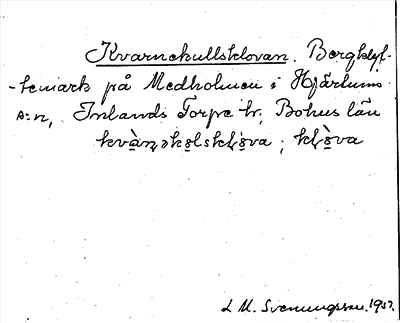 Kvarnekullsklovan. Bergklyf-
-temark på Medholmen i Hjärtums
s:n, Inlands Torpe hr; Bohus län
kvàṇəkọlskḷọ̀va ; kḷọ̀va
L M. Svenungsson. 1937.